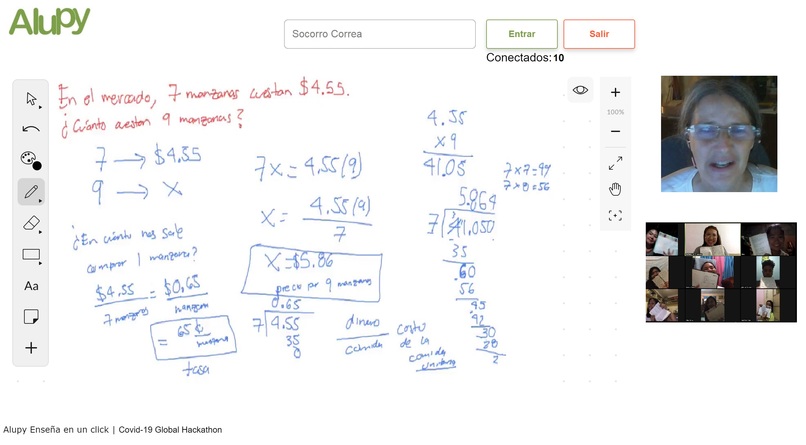 Alupy
Socorro Correa
Entrar
Salir
Conectados: 10
En el mercado, 7 manzanas cuestan $4.55.
¿Cuánto cuestan 9 manzanas?
7 → $4.55
9 → x
¿En cuánto nos sale
comprar 1 manzana?
$4.55 = $0.65
7 manzanas manzana
= 65 ¢
manzana
tasa
7x = 4.55(9)
x = 4.55(9)
7
x = $5.86
precio por 9 manzanas
0.65
7 4.55
35
0
dinero
comida
costo
de la
comida
unitario
4.55
x 9
41.05
7 x 7 = 49
7 x 8 = 56
5.864
7 41.050
35
60
56
45
42
30
28
2
100%
Aa
Alupy Enseña en un click | Covid-19 Global Hackathon